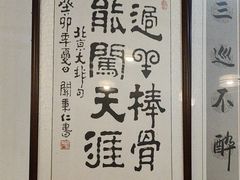 三巡不醉
過 棒骨
能闖天涯
北京大 句
癸卯年夏日 仁書